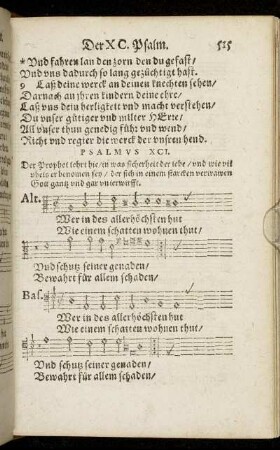 Der XC. Psalm. 515
* Vnd fahren lan den zorn den du gefast/
Vnd vns dadurch so lang gezüchtigt hast.
9 Laß deine werck an deinen knechten sehen/
Darnach an jhren kindern deine ehre/
Laß vns dein herligkeit vnd macht verstehen/
Du vnser gütiger vnd milter HErre/
All vnser thun genedig führ vnd wend/
Richt vnd regier die werck der vnsren hend.
PSALMVS XCI.
Der Prophet lehrt hie/in was sicherheit der lebe/vnd wie vil
vbels er benomen sey/ der sich in einem starcken vertrawen
Gott gantz vnd gar vnterwirfft.
Alt.
Wer in des allerhöchsten hut
Wie einem schatten wohnen thut/
Vnd schutz seiner genaden/
Bewahrt für allem schaden/
Bas.
Wer in des allerhöchsten hut
Wie einem schatten wohnen thut/
Vnd schutz seiner genaden/
Bewahrt für allem schaden/